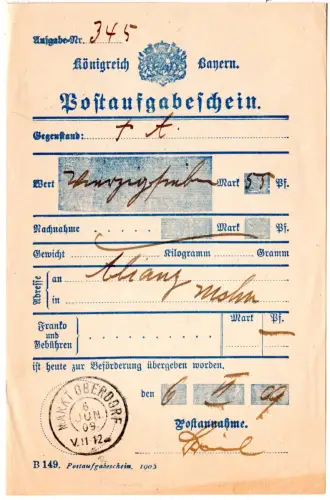 Aufgabe-Nr. 345
Königreich Bayern.
Postaufgabeschein.
Gegenstand: + A.
Wert vierzigsieben Mark 55 Pf.
Nachnahme . . . . . Mark Pf.
Gewicht Kilogramm Gramm
Adresse
an Allianz
in
Mark Pf.
Franko und Gebühren
ist heute zur Beförderung übergeben worden.
den 6 VI 09
MARKT OBERDORF
6 JUN 09
V. 11-12
Postannahme.
B 149. Postaufgabeschein. 1905